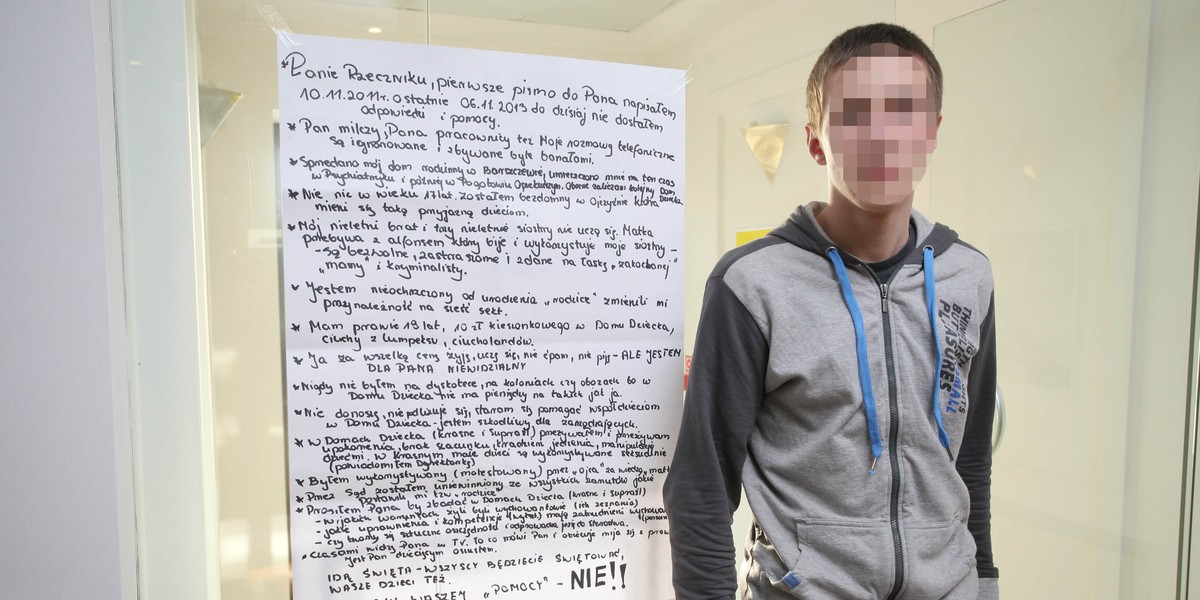 *Panie Rzeczniku, pierwsze pismo do Pana napisałem
10.11.2011r. ostatnie 06.11.2013 do dzisiaj nie dostałem
odpowiedzi i pomocy.
* Pan milczy, Pana pracownicy też. Moje rozmowy telefoniczne
są ignorowane i zbywane były banałami.
* Sprzedano mój dom rodzinny w Barszczewie, umieszczono mnie na ten czas
w Psychiatryku i później w Pogotowiu Opiekuńczym. Obecnie zaliczam kolejny Dom
Dziecka
* Nie, nie w wieku 17 lat. Zostałem bezdomny w Ojczyźnie która
mieni się taką przyjazną dzieciom.
* Mój nieletni brat i trzy nieletnie siostry nie uczą się. Matka
przebywa z alfonsem który bije i wykorzystuje moje siostry -
- są bezwolne, zastraszone i zdane na łaskę „zakochanej"
„mamy i kryminalisty.
* Jestem nieochrzczony od urodzenia „rodzice" zmienili mi
przynależność na sieść sekt.
* Mam prawie 19 lat, 10 zł kieszonkowego w Domu Dziecka,
ciuchy z lumpeksu, ciucholandów.
* Ja za wszelką cenę żyję, uczę się, nie ćpam, nie piję - ALE JESTEM
DLA PANA NIEWIDZIALNY
* Nigdy nie byłem na dyskotece, na koloniach czy obozach bo w
Domu Dziecka nie ma pieniędzy na takich jak ja.
* Nie donoszę, nie podlizuje się, staram się pomagać współdzieciom
w Domu Dziecka - jestem szkodliwy dla zarządzających.
* W Domach Dziecka (Krasne i Supraśl) przeżywałem i przeżywam
upokorzenia, brak szacunku, kradzieni jedzenia, manipulację
dziećmi. W Krasnym małe dzieci są wykorzystywane seksualnie
(powiadomiłem Dyrektorkę)
* Byłem wykorzystywany (molestowany) przez „ojca" za wiedzą „matki
* Przez Sąd zostałem uniewinniony ze wszystkich zarzutów jakie
postawili mi tzw „rodzice"
* Prosiłem Pana by zbadać w Domach Dziecka (Krasne i Supraśl)
- w jakich warunkach żyli byli wychowankowie (ich zeznania)
- jakie uprawnienia i kompetencje (wykszt.) mają zatrudnieni wychowawcy
- czy tworzy się sztuczne oszczędności i odprowadza je się do Starostwa.
* Czasami widzę Pana w TV. To co mówi Pan i obiecuje mija się z praw
Jest Pan dziecięcym oszustem.
IDĄ ŚWIĘTA - WSZYSCY BĘDZIECIE ŚWIĘTOWAĆ,
WASZE DZIECI TEŻ.
WASZEM „POMOCY" - NIE!!
THINK
BUT
PL
ASURES
SMALL